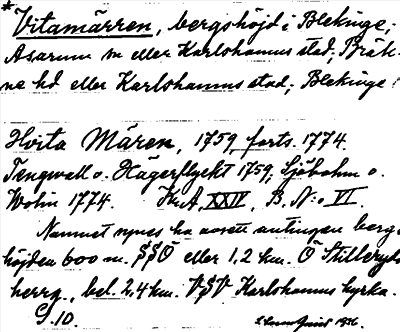 * Vitamärren, bergshöjd i Blekinge;
Asarum sn eller Karlshamns stad; Bräk-
ne hd eller Karlshamns stad; Blekinge l
Hvita Mären, 1759, forts. 1774.
Tengwall o. Hägerflyckt 1759; Sjöbohm o.
Wolin 1774. KrA, XXIV, B, N:o VI.
Namnet synes ha avsett antingen bergs-
höjden 600 m. SSO eller 1,2 km. O Stilleryds
herrg., bel. 2,4 km. VSV Karlshamns kyrka.
S. 10.